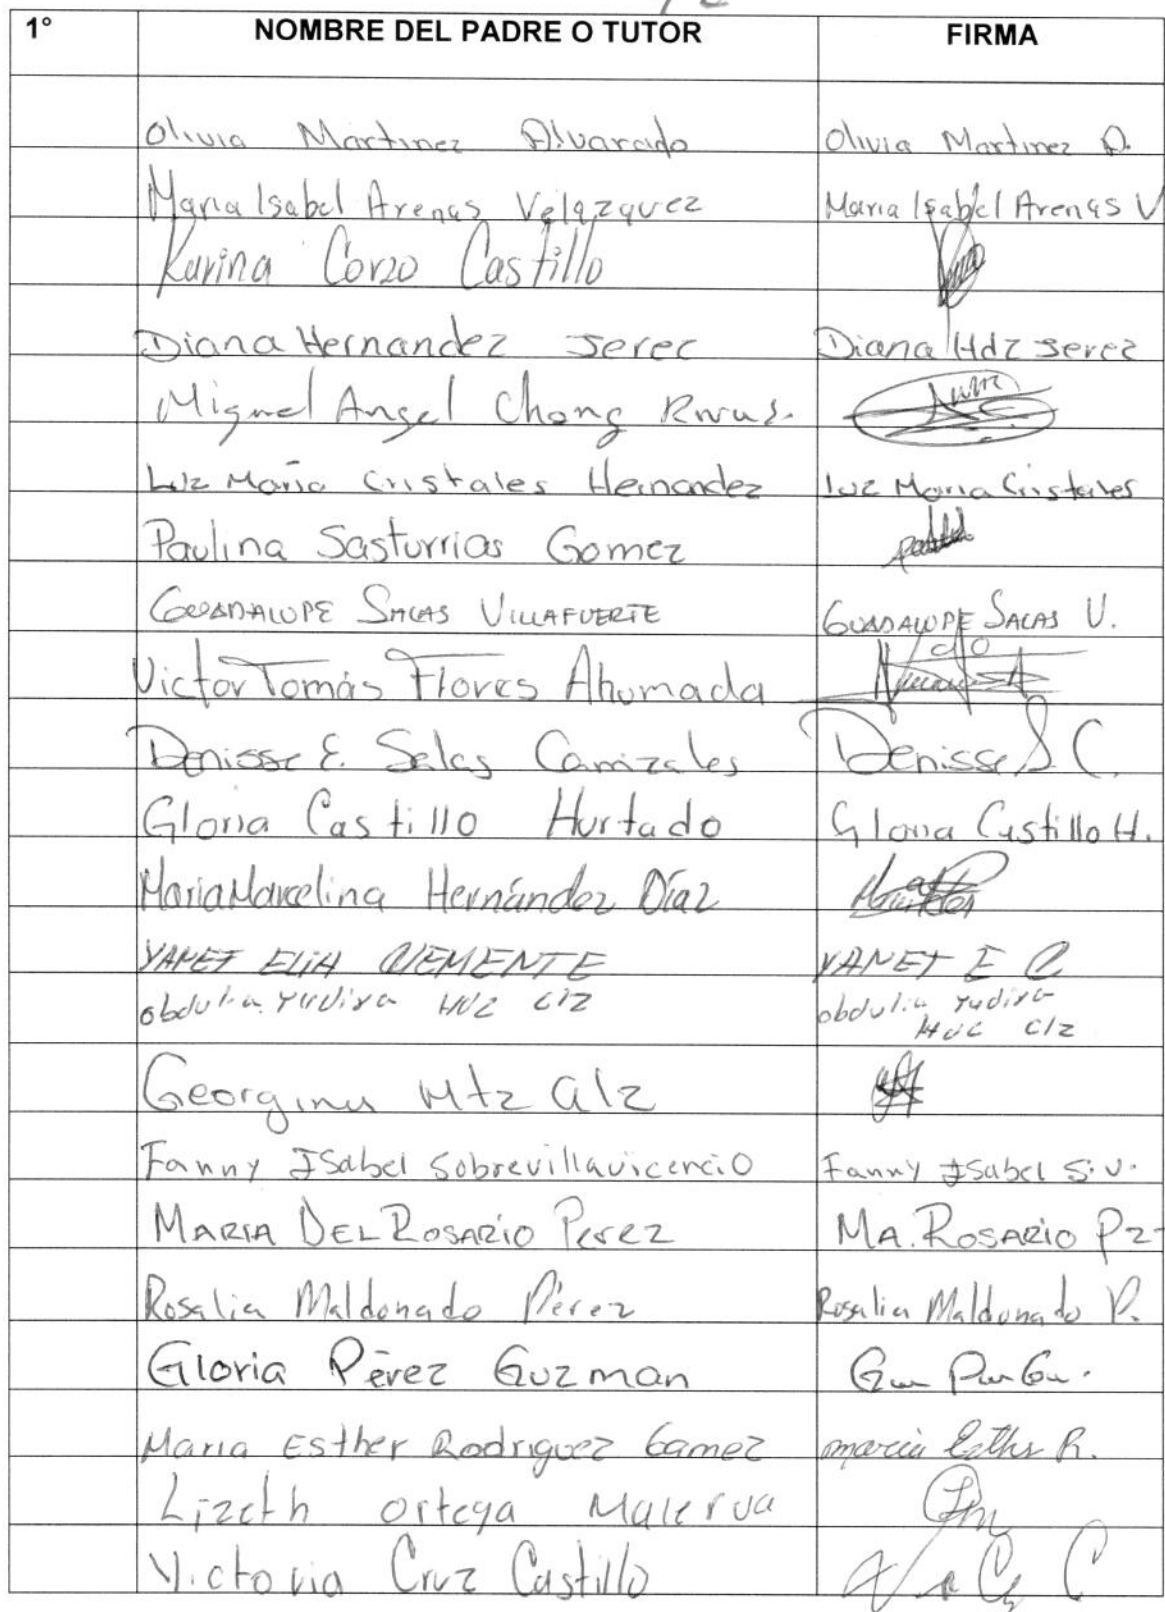 1° NOMBRE DEL PADRE O TUTOR FIRMA
Olivia Martinez Alvarado Olivia Martinez A.
Maria Isabel Arenas Velazquez Maria Isabel Arenas V
Karina Corzo Castillo
Diana Hernandez Jerez Diana Hdz Jerez
Miguel Angel Chong Rivas.
Luz Maria Cristales Hernandez Luz Maria Cristales
Paulina Sasturrias Gomez
GUADALUPE SALAS VILLAFUERTE GUADALUPE SALAS V.
Victor Tomás Flores Ahumada
Denisse E. Salas Canizales Denisse S. C.
Gloria Castillo Hurtado Gloria Castillo H.
Maria Marcelina Hernández Díaz
YANET ELIH CLEMENTE YANET E C
obdulia Yudixa Hdz clz obdulia Yudixa
Hdz clz
Georgina Mtz alz
Fanny Isabel Sobrevillavicencio Fanny Isabel S.V.
MARIA DEL ROSARIO Perez MA. ROSARIO Pz
Rosalia Maldonado Pérez Rosalia Maldonado P.
Gloria Pérez Guzman
Maria Esther Rodriguez Gamez maria Esther R.
Lizeth Ortega Malerva
Victoria Cruz Castillo